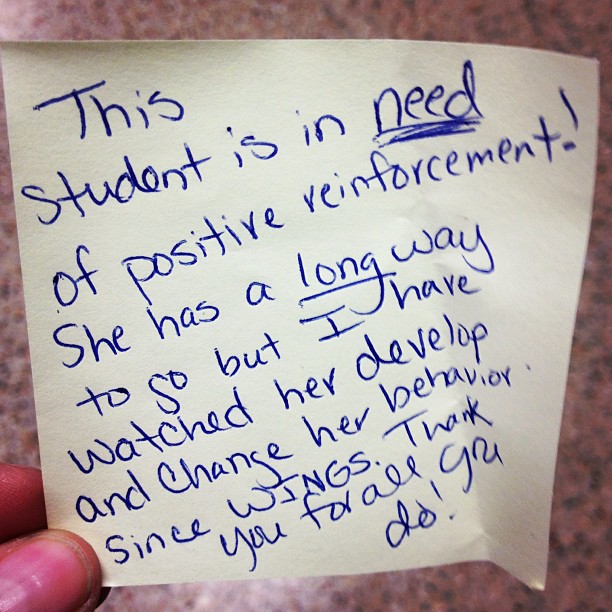 This
student is in need
of positive reinforcement!
She has a long way
to go but I have
watched her develop
and change her behavior
since WINGS. Thank
you for all you
do!